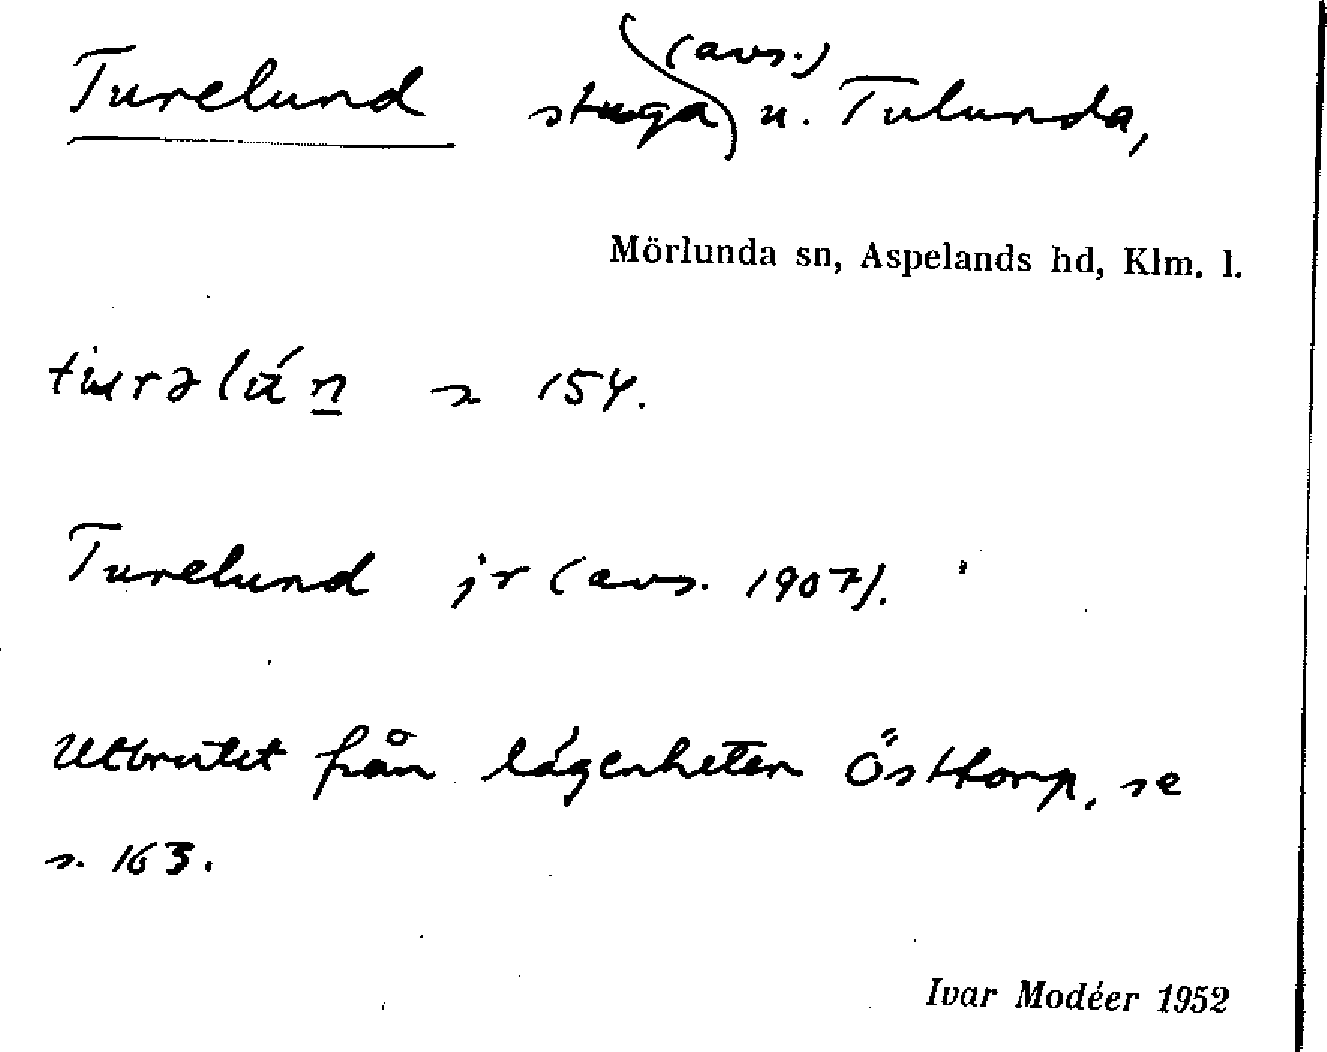 Turelund stuga (avs.) u. Tulunda,
Mörlunda sn, Aspelands hd, Klm. l.
s 154.
Turelund jr (avs. 1907).
Utbrutet från lägenheten Östtorp, se
s. 163.
Ivar Modéer 1952